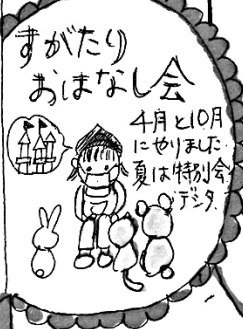 すがたり
おはなし会
4月と10月
にやりました
夏は特別会
デジタ